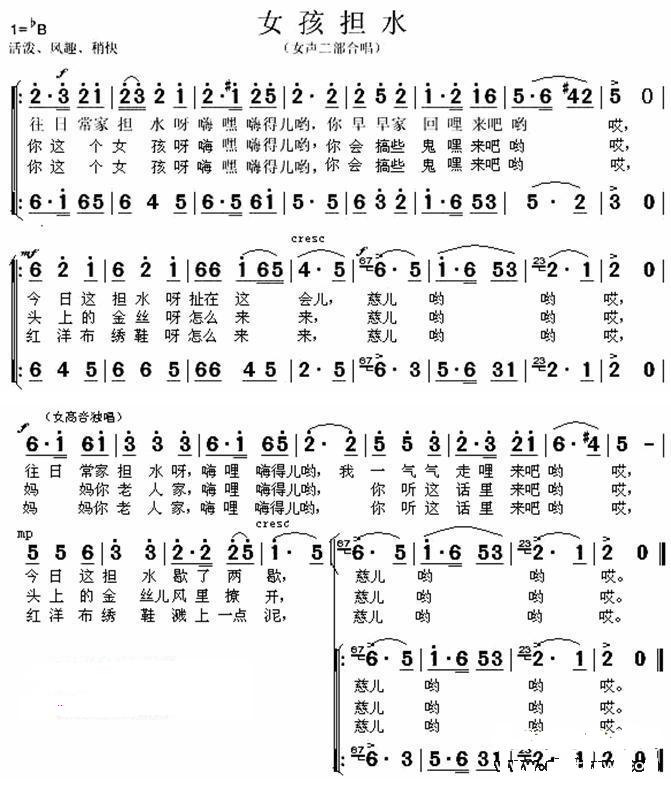 女孩担水
1=♭B
活泼、风趣、稍快
（女声二部合唱）
f
2·3 21 | 23 2 1 | 2·#1 25 | 2· 2 | 2 5 2 | 1·2 16 | 5·6 #42 | 5 0
往日常家担水呀嗨嘿嗨得儿哟，你早早家回哩来吧哟哎，
你这个女孩呀嗨嘿嗨得儿哟，你会搞些鬼嘿来吧哟哎，
你这个女孩呀嗨嘿嗨得儿哟，你会搞些鬼嘿来吧哟哎，
6·1 65 | 6 4 5 | 6·5 61 | 5· 5 | 6 3 2 | 1·6 53 | 5 · 2 | 3 0
cresc
mf f
6 2 1 | 6 2 1 | 66 1 65 | 4· 5 | 67 6· 5 | 1·6 53 | 23 2· 1 | 2 0
今日这担水呀扯在这会儿，慈儿哟哟哎，
头上的金丝呀怎么来来，慈儿哟哟哎，
红洋布绣鞋呀怎么来来，慈儿哟哟哎，
6 4 5 | 6 6 5 | 66 4 5 | 2· 5 | 67 6· 3 | 5·6 31 | 23 2· 1 | 2 0
f （女高音独唱）
6·1 61 | 3 3 3 | 6·1 65 | 2· 2 | 5 5 3 | 2·3 21 | 6·#4 | 5 -
往日常家担水呀，嗨哩嗨得儿哟，我一气气走哩来吧哟哎，
妈妈你老人家，嗨哩嗨得儿哟，你听这话里来吧哟哎，
妈妈你老人家，嗨哩嗨得儿哟，你听这话里来吧哟哎，
mp cresc
5 5 6 | 3 3 | 2·2 25 | 1· 5 | 67 6· 5 | 1·6 53 | 23 2· 1 | 2 0
今日这担水歇了两歇，慈儿哟哟哎。
头上的金丝儿风里撩开，慈儿哟哟哎。
红洋布绣鞋溅上一点泥，慈儿哟哟哎。
67 6· 5 | 1·6 53 | 23 2· 1 | 2 0
慈儿哟哟哎。
慈儿哟哟哎。
慈儿哟哟哎。
67 6· 3 | 5·6 31 | 23 2· 2 0